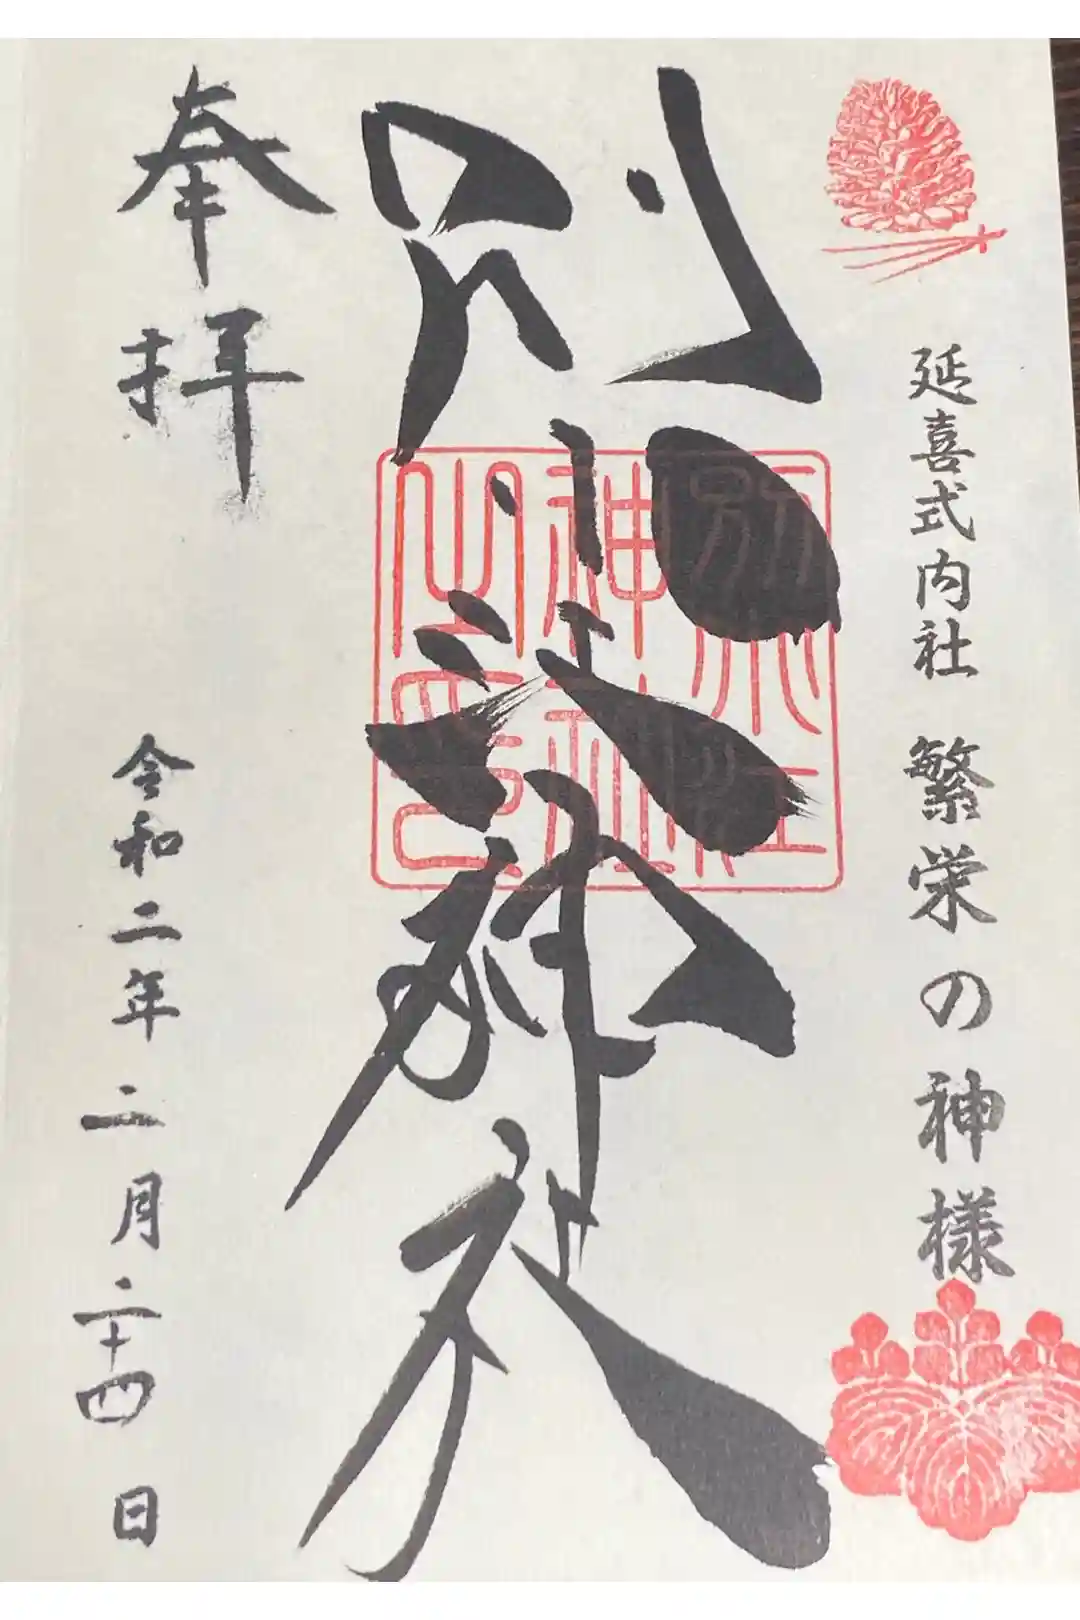 延喜式内社 繁栄の神様
別小江神社
別小江
神社
之印
奉拝
令和二年二月二十四日